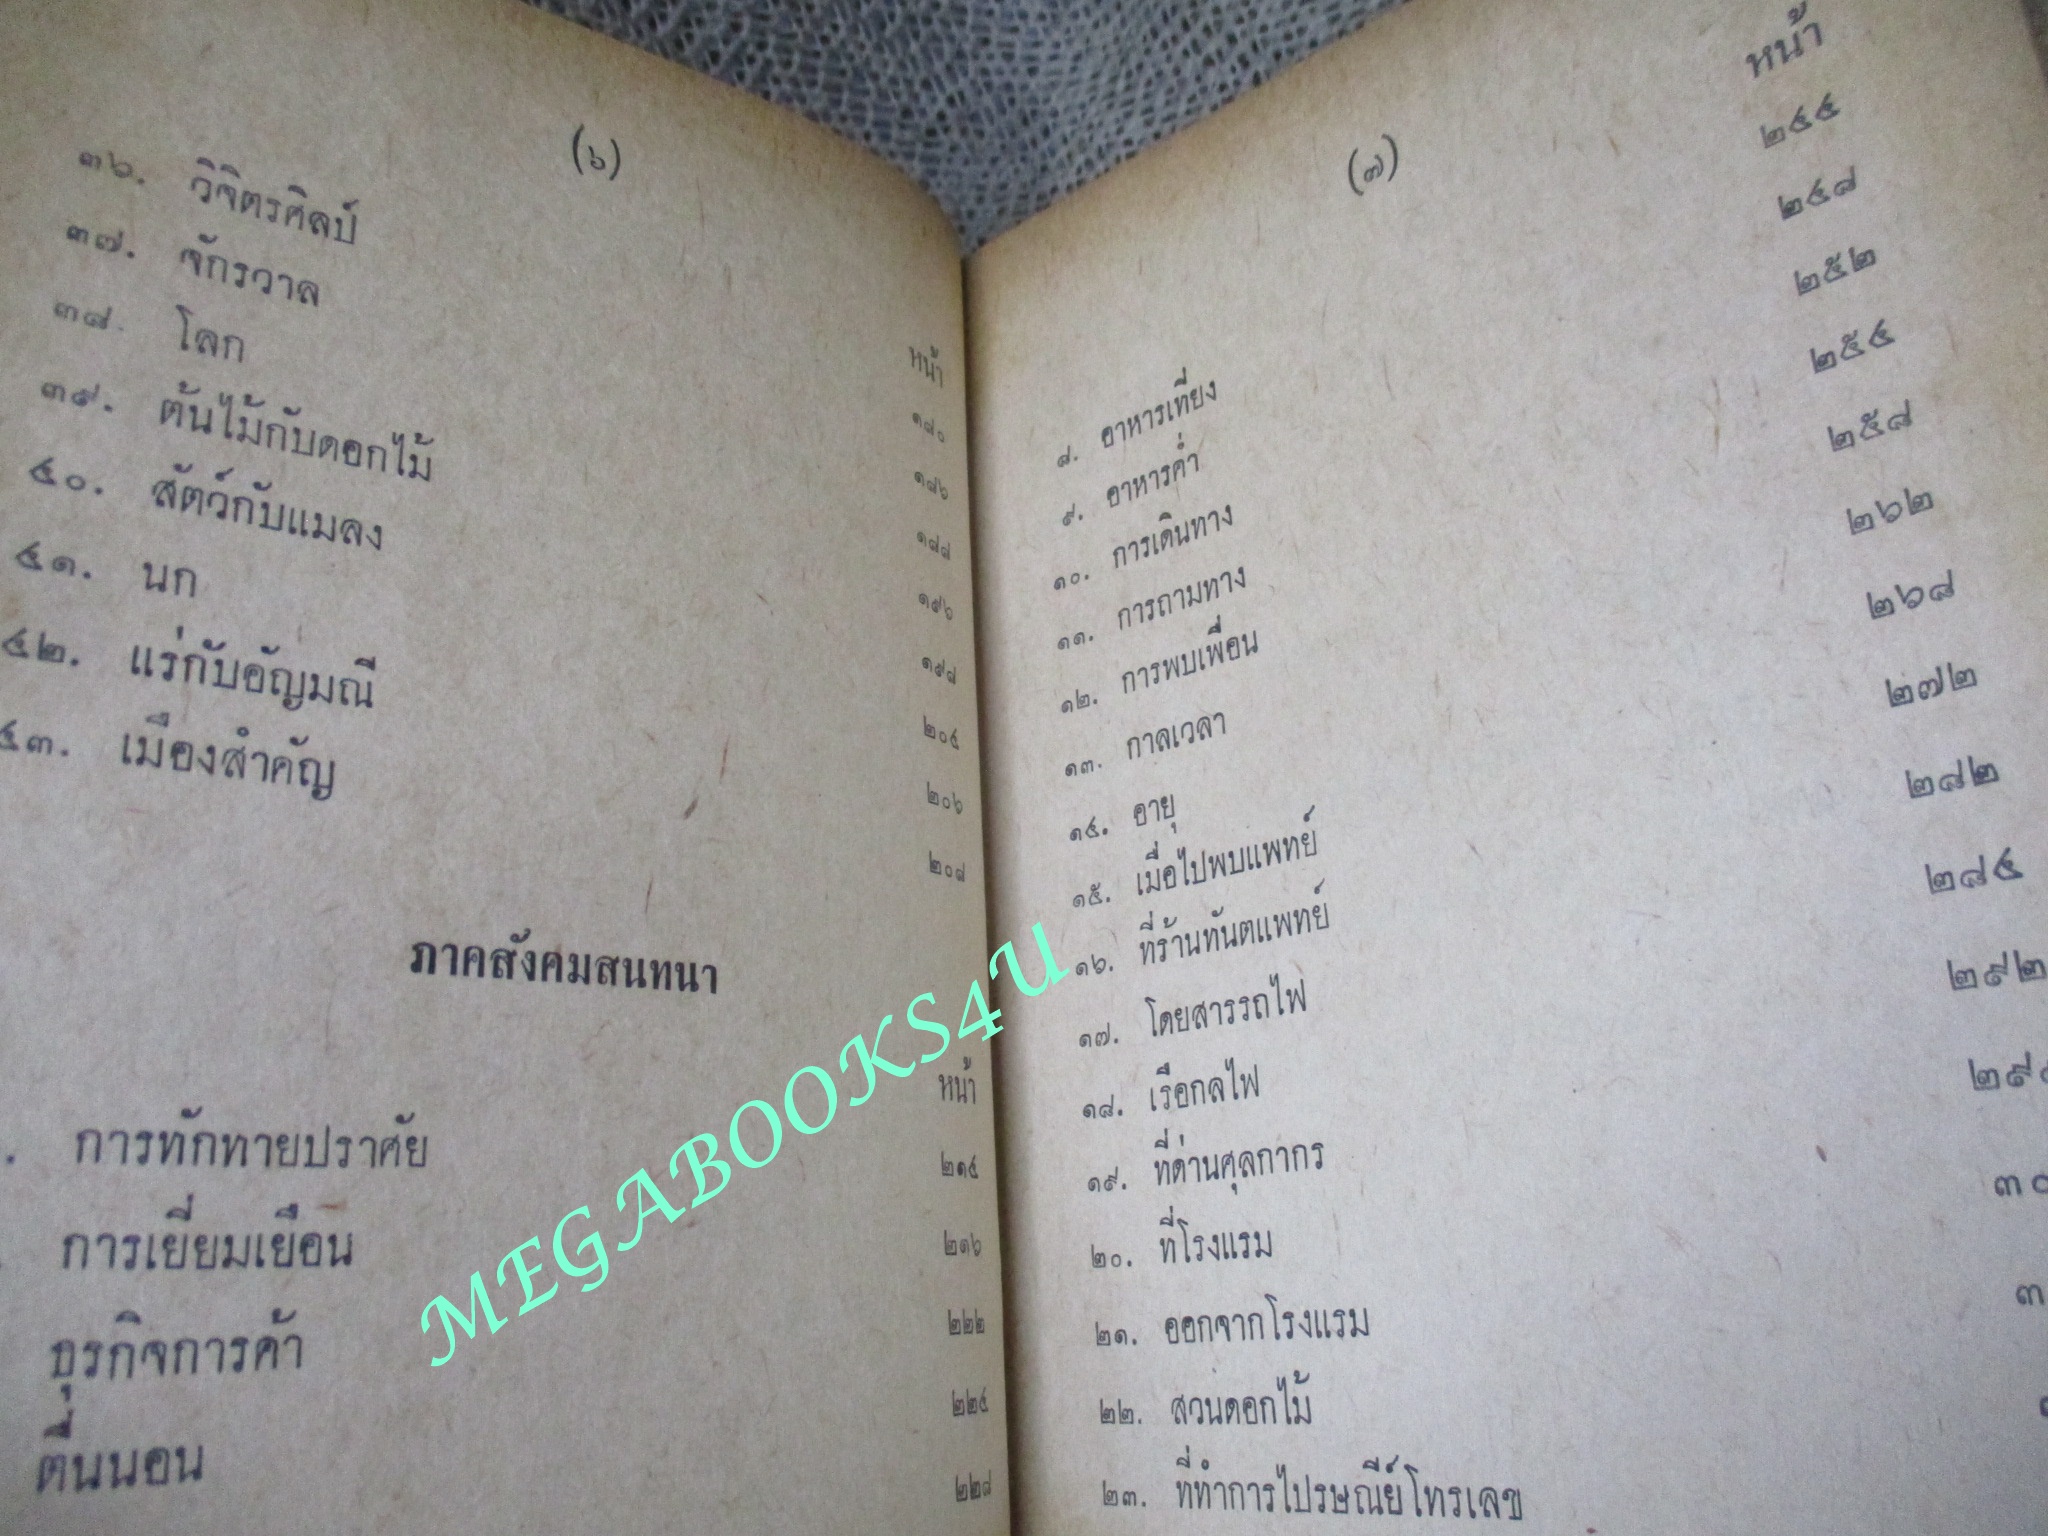 (๖)
หน้า
๓๖. วิจิตรศิลป์ ๑๘๐
๓๗. จักรวาล ๑๘๖
๓๘. โลก ๑๘๘
๓๙. ต้นไม้กับดอกไม้ ๑๙๖
๔๐. สัตว์กับแมลง ๑๙๘
๔๑. นก ๒๐๔
๔๒. แร่กับอัญมณี ๒๐๖
๔๓. เมืองสำคัญ ๒๐๘
ภาคสังคมสนทนา
หน้า
. การทักทายปราศัย ๒๑๔
การเยี่ยมเยือน ๒๑๖
ธุรกิจการค้า ๒๒๒
ตื่นนอน ๒๒๔
๒๒๘
(๗)
หน้า
๘. อาหารเที่ยง ๒๔๔
๙. อาหารค่ำ ๒๔๘
๑๐. การเดินทาง ๒๕๒
๑๑. การถามทาง ๒๕๔
๑๒. การพบเพื่อน ๒๕๘
๑๓. กาลเวลา ๒๖๒
๑๔. อายุ ๒๖๘
๑๕. เมื่อไปพบแพทย์ ๒๗๒
๑๖. ที่ร้านทันตแพทย์ ๒๘๒
๑๗. โดยสารรถไฟ ๒๘๔
๑๘. เรือกลไฟ ๒๙๒
๑๙. ที่ด่านศุลกากร ๒๙
๒๐. ที่โรงแรม ๓๐
๒๑. ออกจากโรงแรม ๓
๒๒. สวนดอกไม้
๒๓. ที่ทำการไปรษณีย์โทรเลข
MEGABOOKS4U